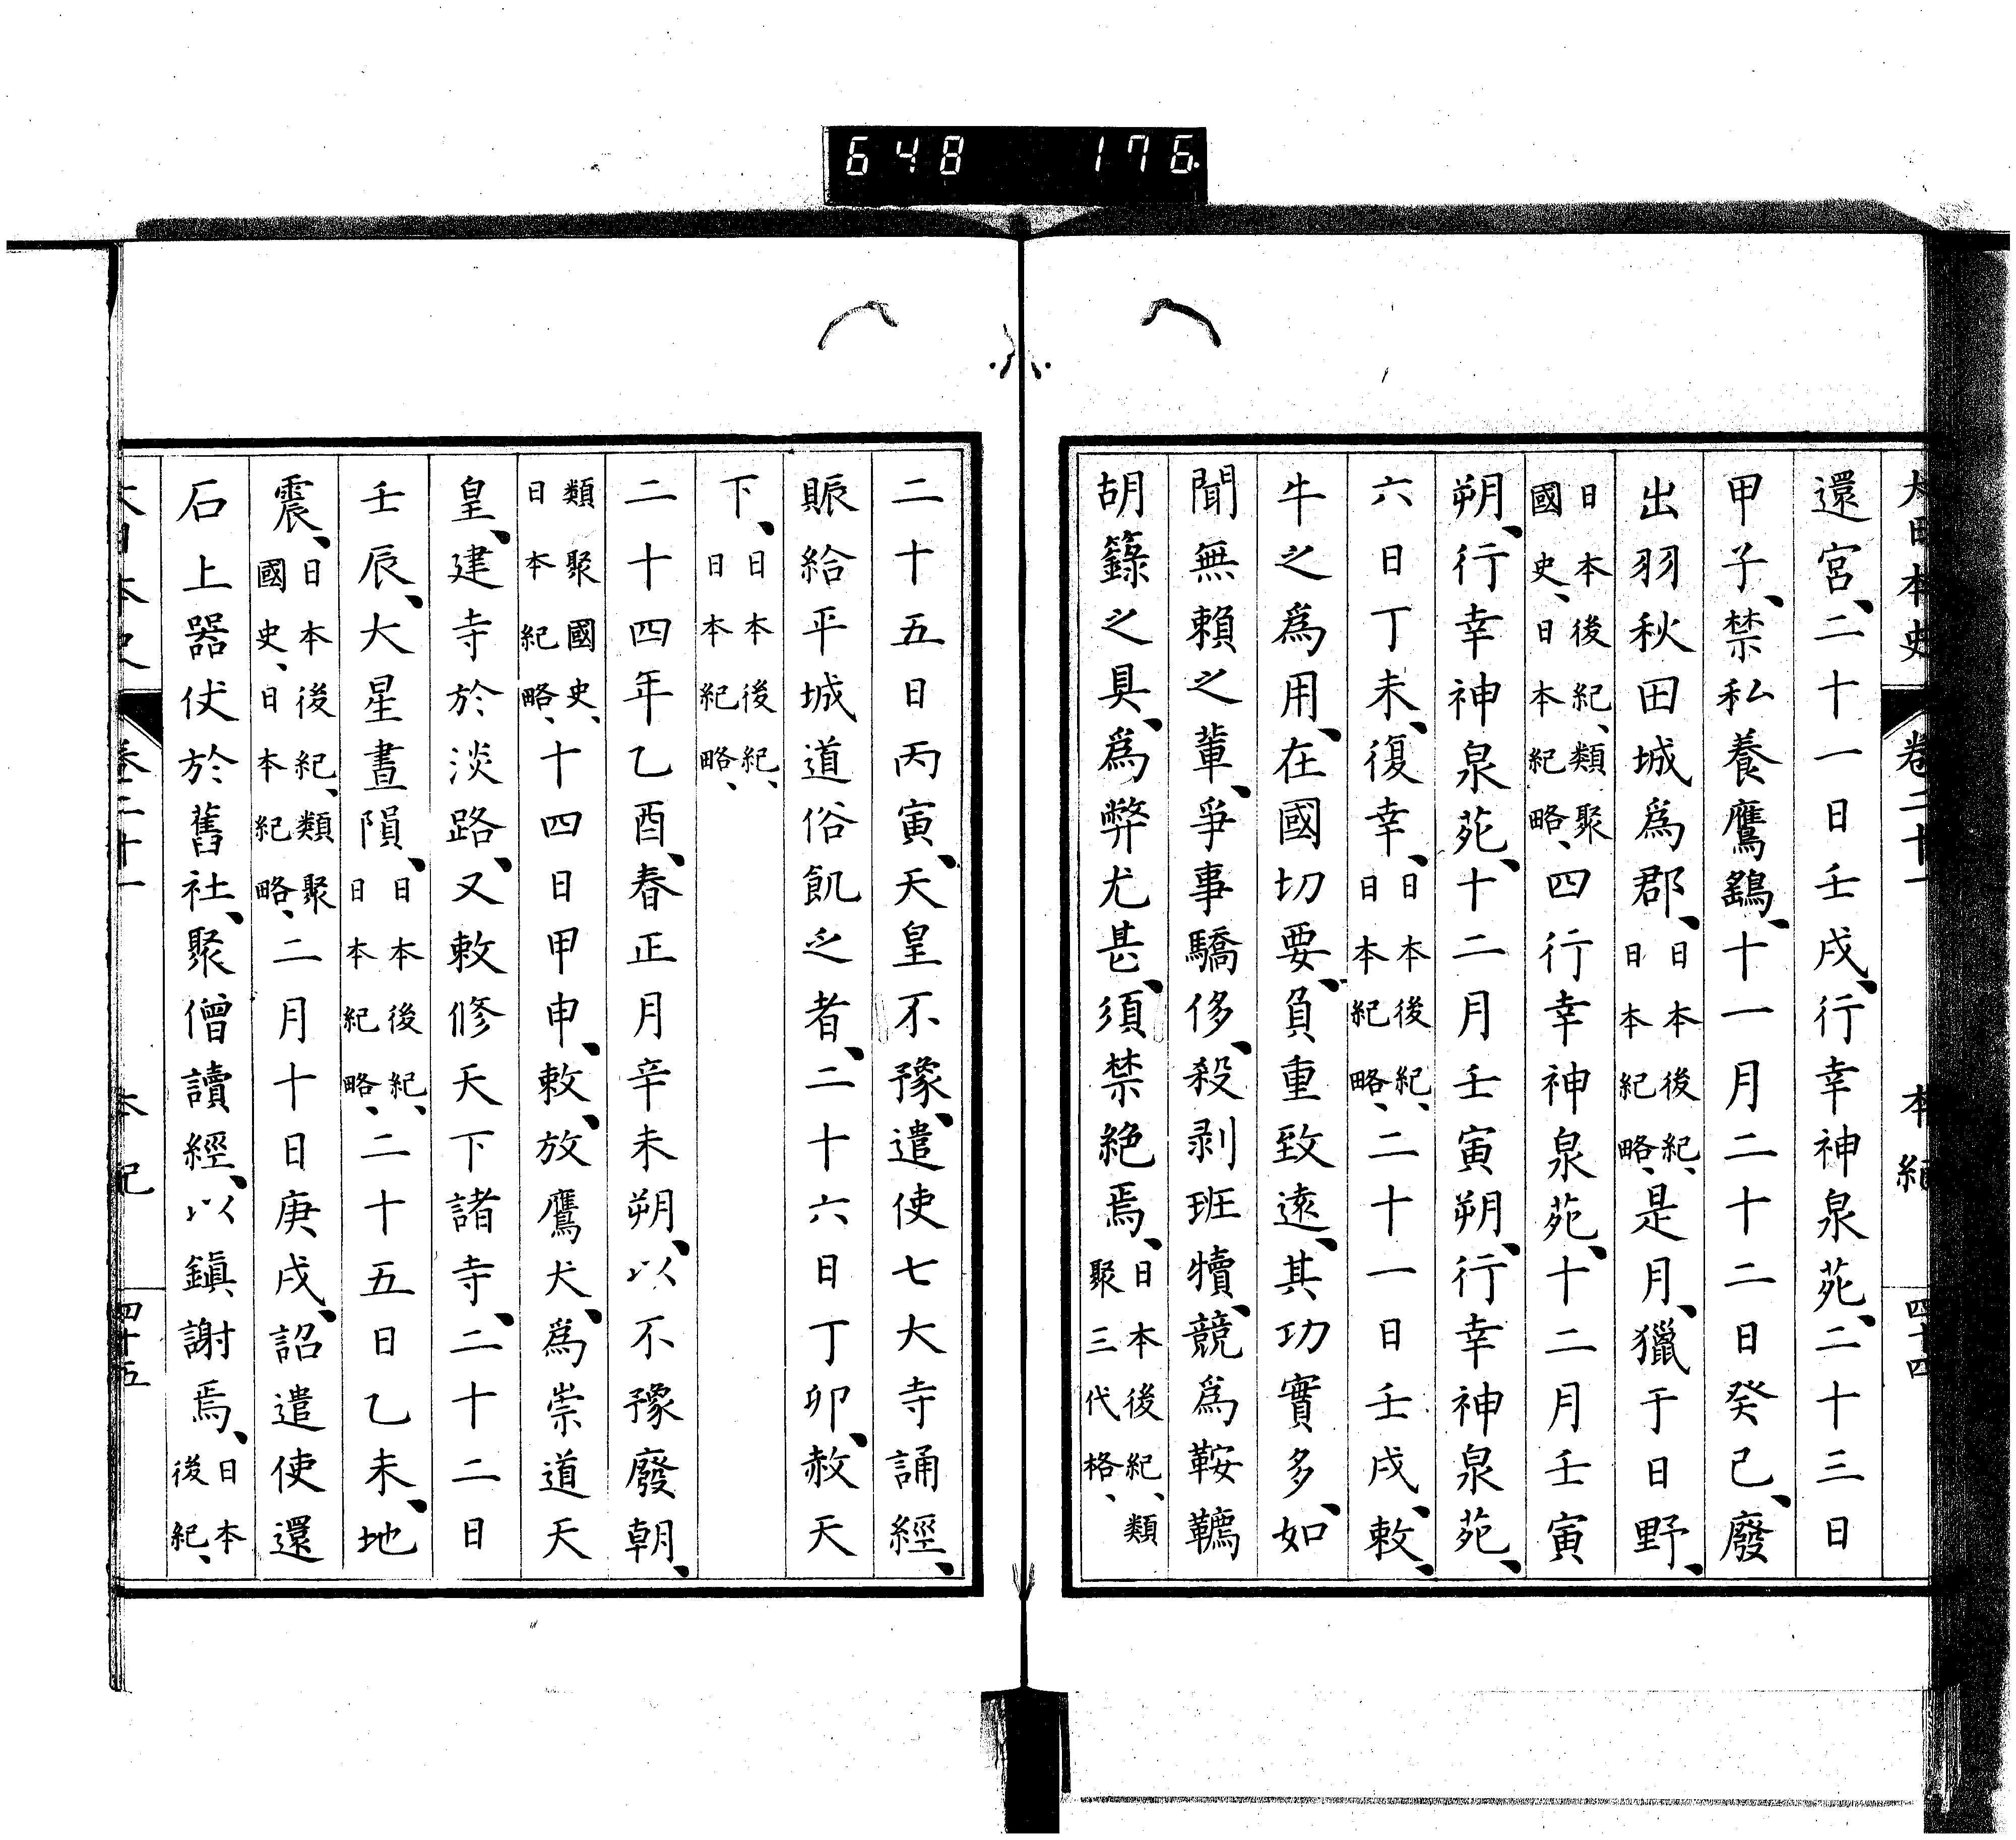 648 176
大日本史 卷二十一 本紀 四十四
還宮、二十一日壬戌、行幸神泉苑、二十三日
甲子、禁私養鷹鷂、十一月二十二日癸巳、廢
出羽秋田城爲郡、日本後紀、日本紀略、是月、獵于日野、
日本後紀、類聚國史、日本紀略、四行幸神泉苑、十二月壬寅
朔、行幸神泉苑、十二月壬寅朔、行幸神泉苑、
六日丁未、復幸、日本後紀、日本紀略、二十一日壬戌、敕、
牛之爲用、在國切要、負重致遠、其功實多、如
聞無賴之輩、爭事驕侈、殺剥班犢、競爲鞍韉
胡籙之具、爲弊尤甚、須禁絶焉、日本後紀、類聚三代格、
二十五日丙寅、天皇不豫、遣使七大寺誦經、
賑給平城道俗飢乏者、二十六日丁卯、赦天
下、日本後紀、日本紀略、
二十四年乙酉、春正月辛未朔、以不豫廢朝、
類聚國史、日本紀略、十四日甲申、敕、放鷹犬、爲崇道天
皇、建寺於淡路、又敕修天下諸寺、二十二日
壬辰、大星晝隕、日本後紀、日本紀略、二十五日乙未、地
震、日本後紀、類聚國史、日本紀略、二月十日庚戌、詔遣使還
石上器仗於舊社、聚僧讀經、以鎭謝焉、日本後紀、
大日本史 卷二十一 本紀 四十五